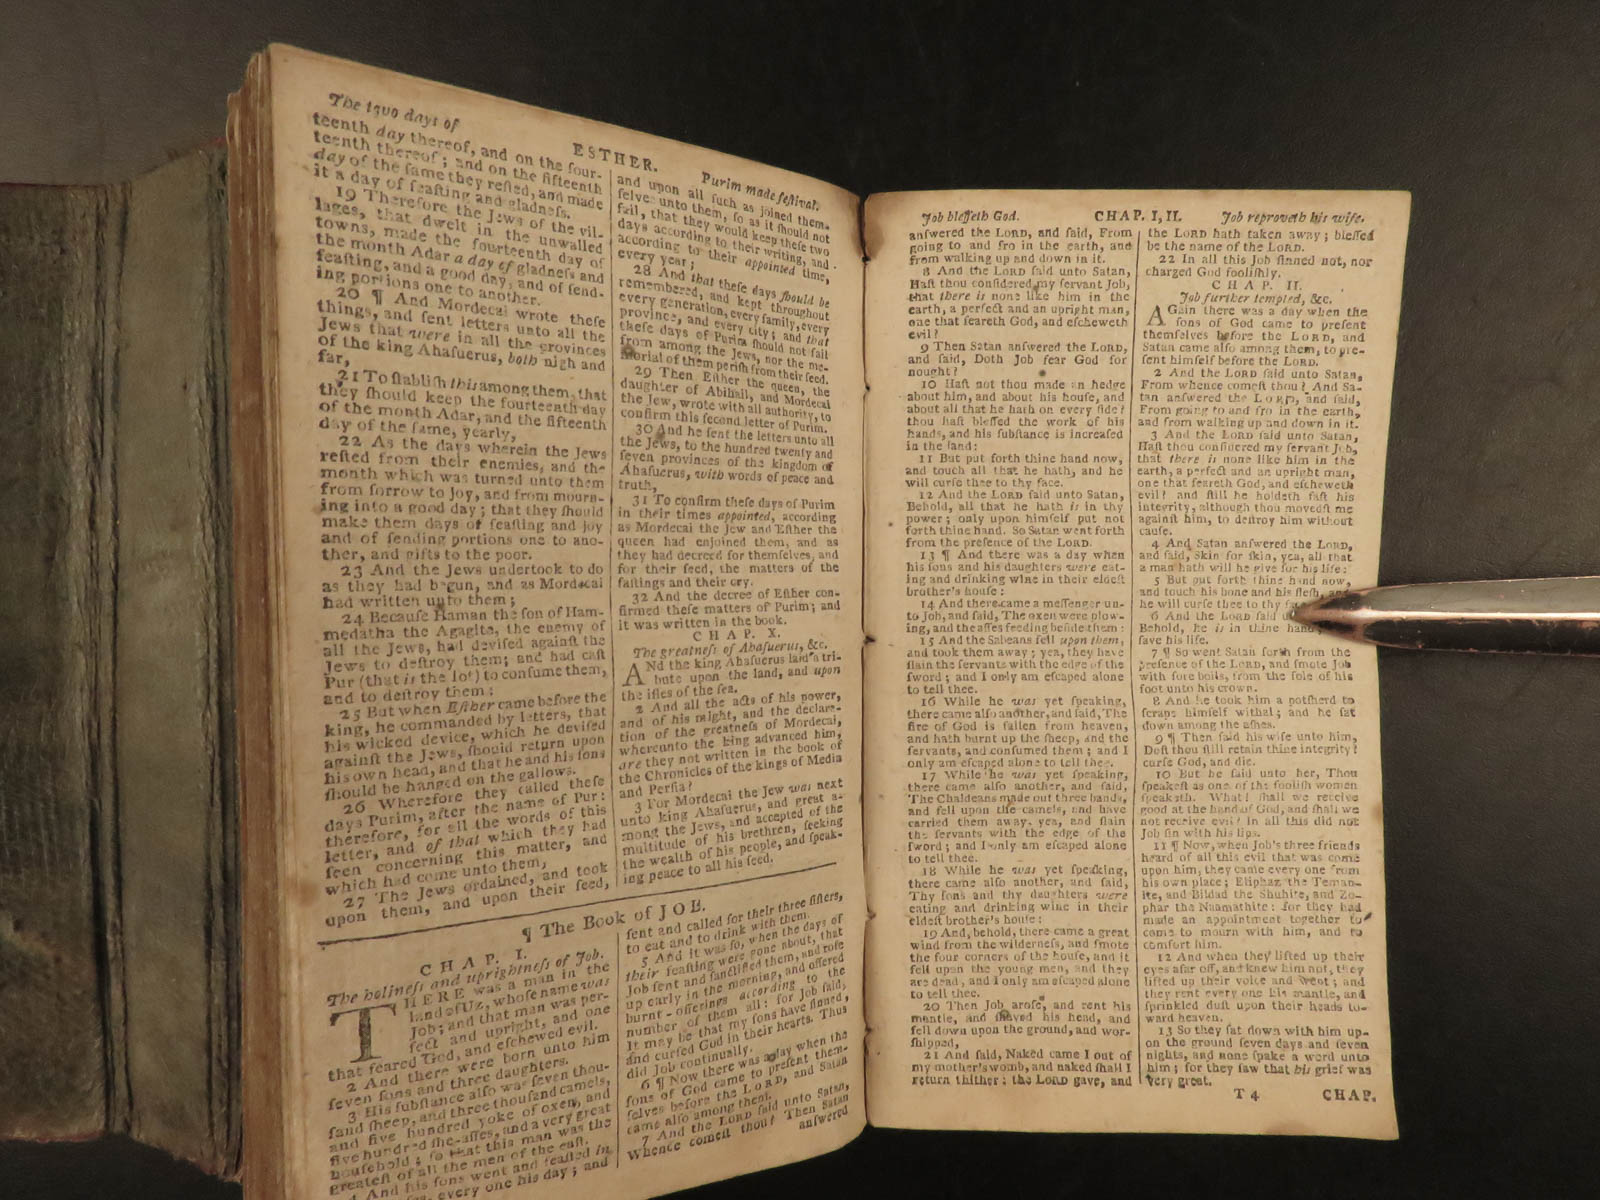 The two days of
ESTHER.
Purim made feſtival.
teenth day thereof, and on the four-
teenth thereof; and on the fifteenth
day of the ſame they reſted, and made
it a day of feaſting and gladneſs.
19 Therefore the Jews of the vil-
lages, that dwelt in the unwalled
towns, made the fourteenth day of
the month Adar a day of gladneſs and
feaſting, and a good day, and of ſend-
ing portions one to another.
20 ¶ And Mordecai wrote theſe
things, and ſent letters unto all the
Jews that were in all the provinces
of the king Ahaſuerus, both nigh and
far,
21 To ſtabliſh this among them, that
they ſhould keep the fourteenth day
of the month Adar, and the fifteenth
day of the ſame, yearly,
22 As the days wherein the Jews
reſted from their enemies, and the
month which was turned unto them
from ſorrow to joy, and from mourn-
ing into a good day; that they ſhould
make them days of feaſting and joy
and of ſending portions one to ano-
ther, and gifts to the poor.
23 And the Jews undertook to do
as they had begun, and as Mordecai
had written unto them;
24 Becauſe Haman the ſon of Ham-
medatha the Agagite, the enemy of
all the Jews, had deviſed againſt the
Jews to deſtroy them; and had caſt
Pur (that is the lot) to conſume them,
and to deſtroy them:
25 But when Eſther came before the
king, he commanded by letters, that
his wicked device, which he deviſed
againſt the Jews, ſhould return upon
his own head, and that he and his ſons
ſhould be hanged on the gallows.
26 Wherefore they called theſe
days Purim, after the name of Pur:
therefore, for all the words of this
letter, and of that which they had
ſeen concerning this matter, and
which had come unto them,
27 The Jews ordained, and took
upon them, and upon their ſeed,
and upon all ſuch as joined them-
ſelves unto them, ſo as it ſhould not
fail, that they would keep theſe two
days according to their writing, and
according to their appointed time,
every year;
28 And that theſe days ſhould be
remembered, and kept throughout
every generation, every family, every
province, and every city; and that
theſe days of Purim ſhould not fail
from among the Jews, nor the me-
morial of them periſh from their ſeed.
29 Then Eſther the queen, the
daughter of Abihail, and Mordecai
the Jew, wrote with all authority, to
confirm this ſecond letter of Purim.
30 And he ſent the letters unto all
the Jews, to the hundred twenty and
ſeven provinces of the kingdom of
Ahaſuerus, with words of peace and
truth,
31 To confirm theſe days of Purim
in their times appointed, according
as Mordecai the Jew and Eſther the
queen had enjoined them, and as
they had decreed for themſelves, and
for their ſeed, the matters of the
faſtings and their cry.
32 And the decree of Eſther con-
firmed theſe matters of Purim; and
it was written in the book.
CHAP. X.
The greatneſs of Ahaſuerus, &c.
ANd the king Ahaſuerus laid a tri-
bute upon the land, and upon
the iſles of the ſea.
2 And all the acts of his power,
and of his might, and the declara-
tion of the greatneſs of Mordecai,
whereunto the king advanced him,
are they not written in the book of
the Chronicles of the kings of Media
and Perſia?
3 For Mordecai the Jew was next
unto king Ahaſuerus, and great a-
mong the Jews, and accepted of the
multitude of his brethren, ſeeking
the wealth of his people, and ſpeak-
ing peace to all his ſeed.
¶ The Book of JOB.
CHAP. I.
The holineſs and uprightneſs of Job.
THERE was a man in the
land of Uz, whoſe name was
Job; and that man was per-
fect and upright, and one
that feared God, and eſchewed evil.
2 And there were born unto him
ſeven ſons and three daughters.
3 His ſubſtance alſo was ſeven thou-
ſand ſheep, and three thouſand camels,
and five hundred yoke of oxen, and
five hundred ſhe-aſſes, and a very great
houſehold; ſo that this man was the
greateſt of all the men of the eaſt.
4 And his ſons went and feaſted in
every one his day; and
ſent and called for their three ſiſters,
to eat and to drink with them.
5 And it was ſo, when the days of
their feaſting were gone about, that
Job ſent and ſanctified them, and roſe
up early in the morning, and offered
burnt-offerings according to the
number of them all: for Job ſaid,
It may be that my ſons have ſinned,
and curſed God in their hearts. Thus
did Job continually.
6 ¶ Now there was a day when the
ſons of God came to preſent them-
ſelves before the LORD, and Satan
came alſo among them.
7 And the LORD ſaid unto Satan,
Whence comeſt thou? Then Satan
anſwered
Job bleſſeth God.
CHAP. I, II.
Job reproveth his wife.
anſwered the LORD, and ſaid, From
going to and fro in the earth, and
from walking up and down in it.
8 And the LORD ſaid unto Satan,
Haſt thou conſidered my ſervant Job,
that there is none like him in the
earth, a perfect and an upright man,
one that feareth God, and eſcheweth
evil?
9 Then Satan anſwered the LORD,
and ſaid, Doth Job fear God for
nought?
10 Haſt not thou made an hedge
about him, and about his houſe, and
about all that he hath on every ſide?
thou haſt bleſſed the work of his
hands, and his ſubſtance is increaſed
in the land:
11 But put forth thine hand now,
and touch all that he hath, and he
will curſe thee to thy face.
12 And the LORD ſaid unto Satan,
Behold, all that he hath is in thy
power; only upon himſelf put not
forth thine hand. So Satan went forth
from the preſence of the LORD.
13 ¶ And there was a day when
his ſons and his daughters were eat-
ing and drinking wine in their eldeſt
brother's houſe:
14 And there came a meſſenger un-
to Job, and ſaid, The oxen were plow-
ing, and the aſſes feeding beſide them:
15 And the Sabeans fell upon them,
and took them away; yea, they have
ſlain the ſervants with the edge of the
ſword; and I only am eſcaped alone
to tell thee.
16 While he was yet ſpeaking,
there came alſo another, and ſaid, The
fire of God is fallen from heaven,
and hath burnt up the ſheep, and the
ſervants, and conſumed them; and I
only am eſcaped alone to tell thee.
17 While he was yet ſpeaking,
there came alſo another, and ſaid,
The Chaldeans made out three bands,
and fell upon the camels, and have
carried them away, yea, and ſlain
the ſervants with the edge of the
ſword; and I only am eſcaped alone
to tell thee.
18 While he was yet ſpeaking,
there came alſo another, and ſaid,
Thy ſons and thy daughters were
eating and drinking wine in their
eldeſt brother's houſe:
19 And, behold, there came a great
wind from the wilderneſs, and ſmote
the four corners of the houſe, and it
fell upon the young men, and they
are dead, and I only am eſcaped alone
to tell thee.
20 Then Job aroſe, and rent his
mantle, and ſhaved his head, and
fell down upon the ground, and wor-
ſhipped,
21 And ſaid, Naked came I out of
my mother's womb, and naked ſhall I
return thither: the LORD gave, and
the LORD hath taken away; bleſſed
be the name of the LORD.
22 In all this Job ſinned not, nor
charged God fooliſhly.
CHAP. II.
Job further tempted, &c.
AGain there was a day when the
ſons of God came to preſent
themſelves before the LORD, and
Satan came alſo among them, to pre-
ſent himſelf before the LORD.
2 And the LORD ſaid unto Satan,
From whence comeſt thou? And Sa-
tan anſwered the LORD, and ſaid,
From going to and fro in the earth,
and from walking up and down in it.
3 And the LORD ſaid unto Satan,
Haſt thou conſidered my ſervant Job,
that there is none like him in the
earth, a perfect and an upright man,
one that feareth God, and eſcheweth
evil? and ſtill he holdeth faſt his
integrity, although thou movedſt me
againſt him, to deſtroy him without
cauſe.
4 And Satan anſwered the LORD,
and ſaid, Skin for ſkin, yea, all that
a man hath will he give for his life:
5 But put forth thine hand now,
and touch his bone and his fleſh, and
he will curſe thee to thy
6 And the LORD ſaid
Behold, he is in thine hand;
ſave his life.
7 ¶ So went Satan forth from the
preſence of the LORD, and ſmote Job
with ſore boils, from the ſole of his
foot unto his crown.
8 And he took him a potſherd to
ſcrape himſelf withal; and he ſat
down among the aſhes.
9 ¶ Then ſaid his wife unto him,
Doſt thou ſtill retain thine integrity?
curſe God, and die.
10 But he ſaid unto her, Thou
ſpeakeſt as one of the fooliſh women
ſpeaketh. What! ſhall we receive
good at the hand of God, and ſhall we
not receive evil? In all this did not
Job ſin with his lips.
11 ¶ Now, when Job's three friends
heard of all this evil that was come
upon him, they came every one from
his own place; Eliphaz the Teman-
ite, and Bildad the Shuhite, and Zo-
phar the Naamathite: for they had
made an appointment together to
come to mourn with him, and to
comfort him.
12 And when they lifted up their
eyes afar off, and knew him not, they
lifted up their voice and wept; and
they rent every one his mantle, and
ſprinkled duſt upon their heads to-
ward heaven.
13 So they ſat down with him up-
on the ground ſeven days and ſeven
nights, and none ſpake a word unto
him; for they ſaw that his grief was
very great.
T 4
CHAP.